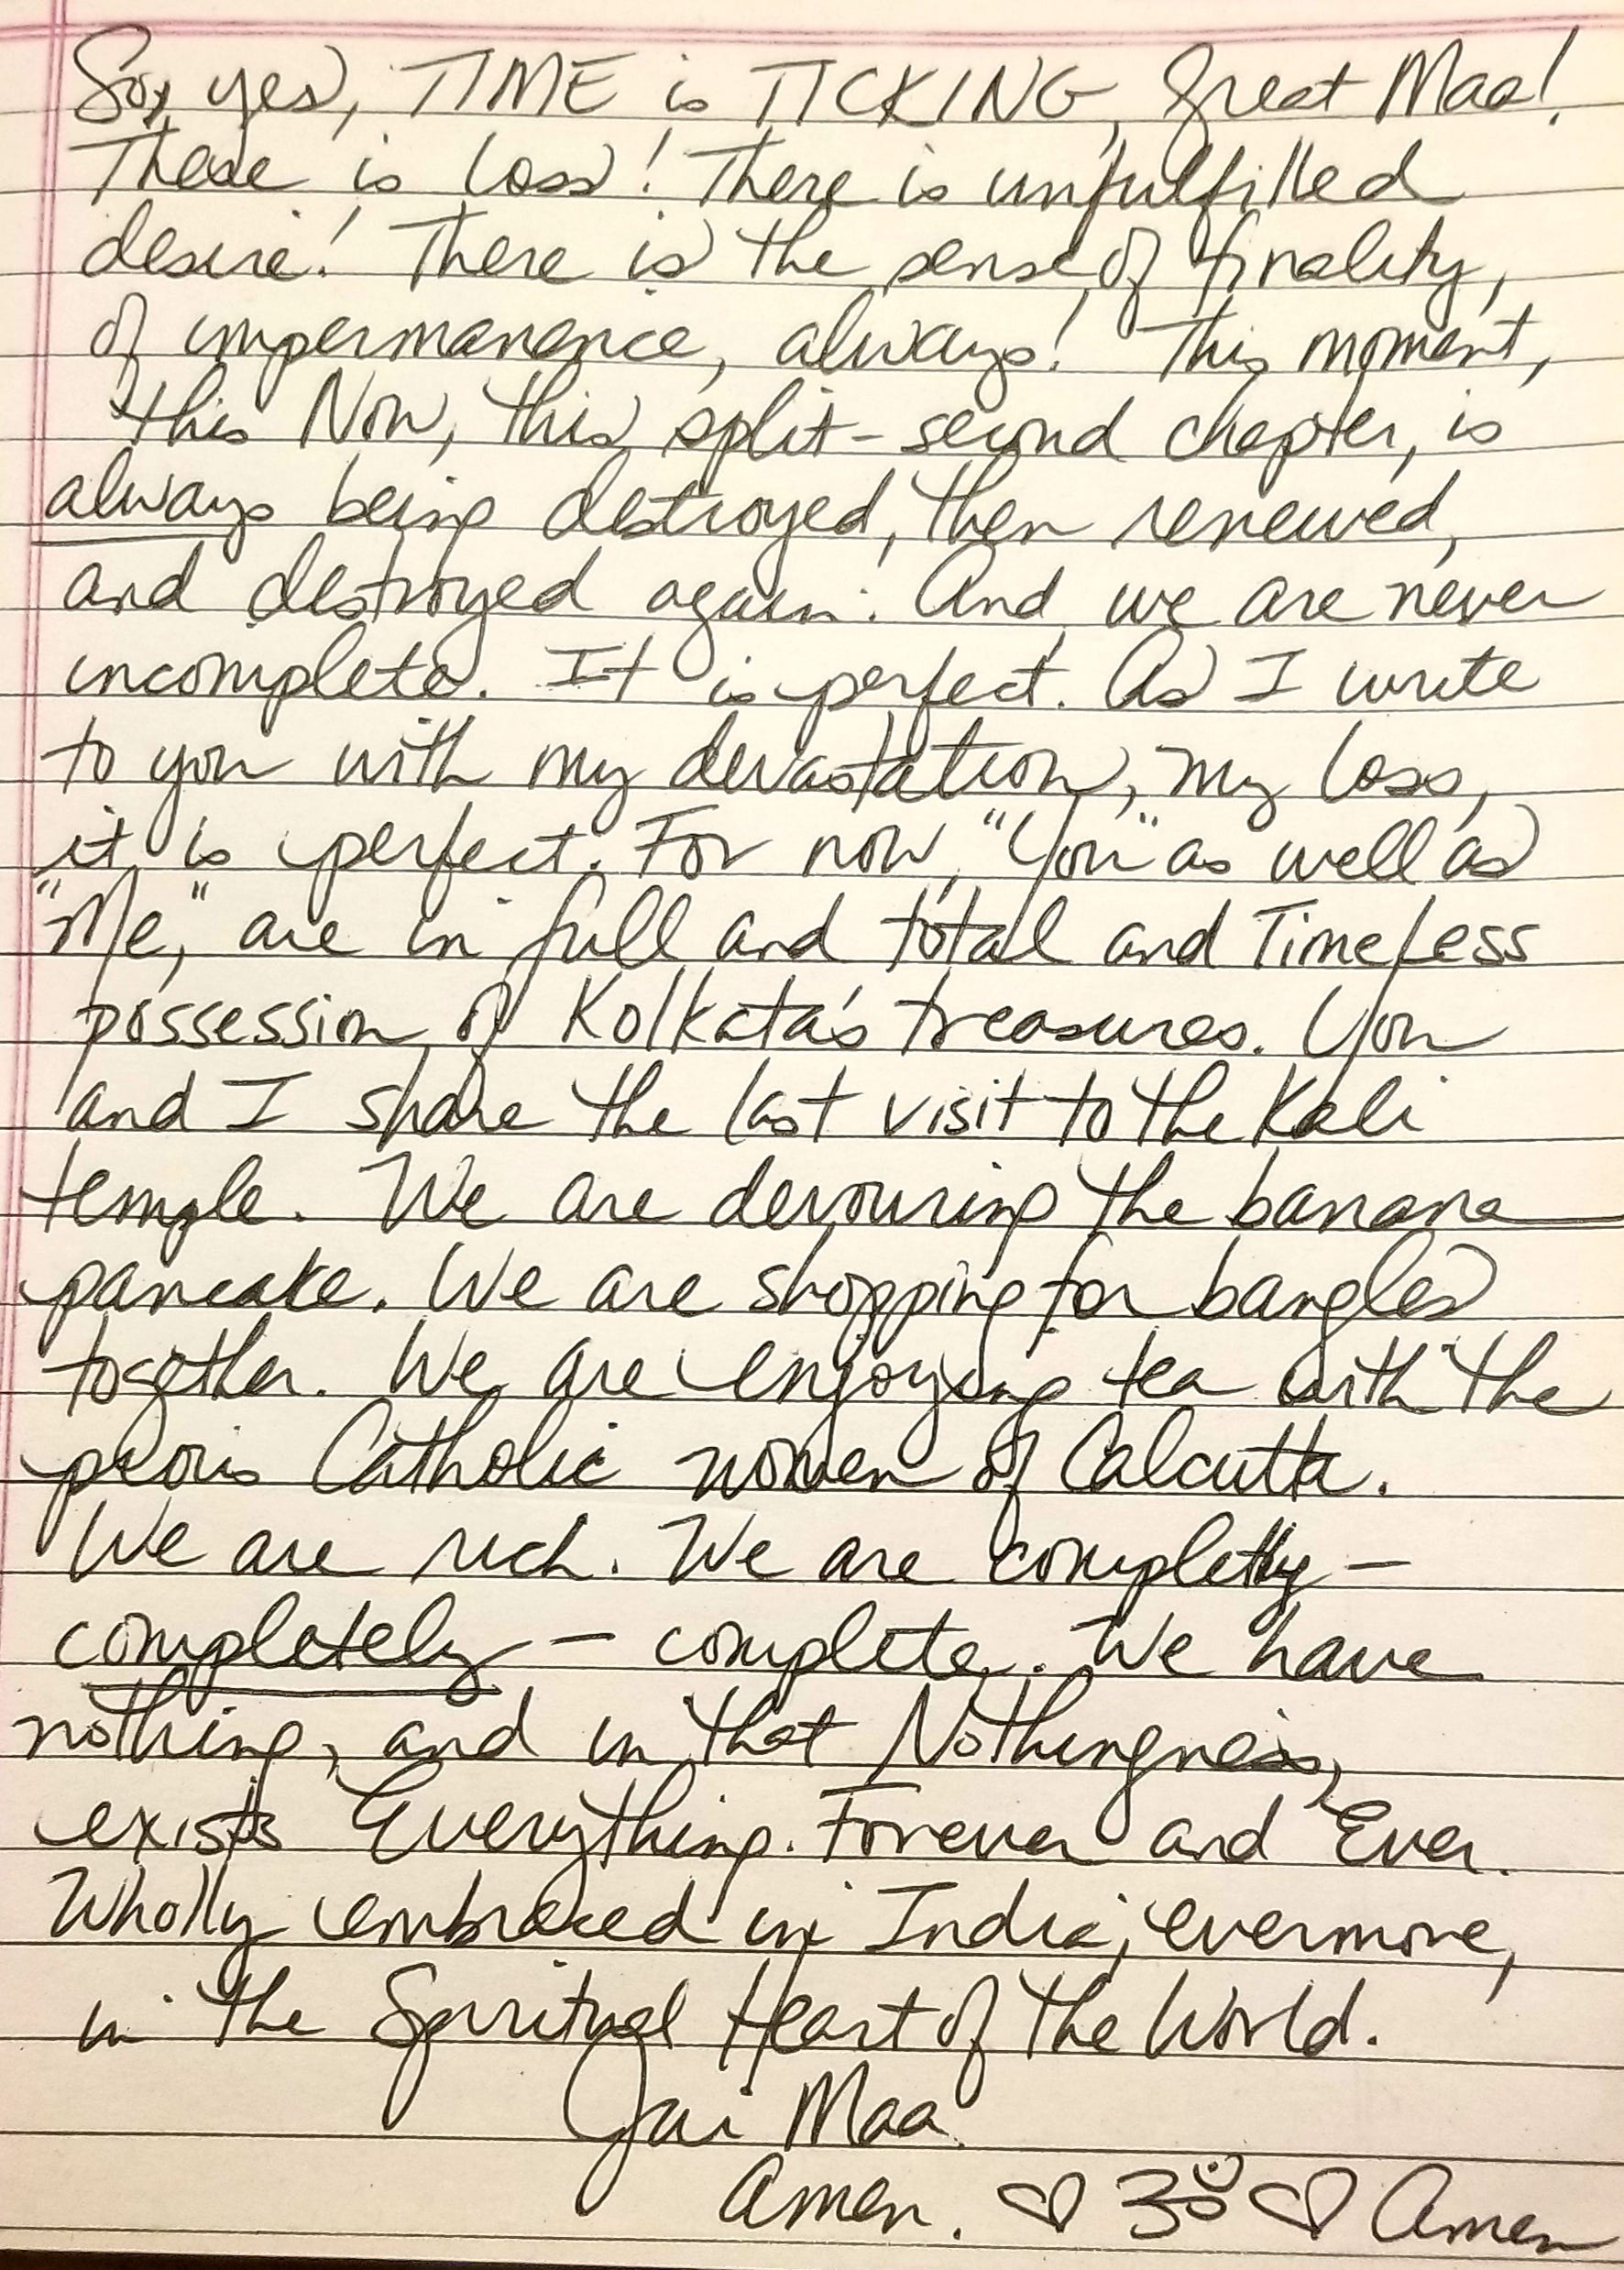 So, yes, TIME is TICKING, Great Maa!
There is loss! There is unfulfilled
desire! There is the sense of finality,
of impermanence, always! This moment,
this Now, this split-second chapter, is
always being destroyed, then renewed,
and destroyed again. And we are never
incomplete. It is perfect. As I write
to you with my devastation, my loss,
it is perfect. For now, "You" as well as
"Me," are in full and total and Timeless
possession of Kolkata's treasures. You
and I share the last visit to the Kali
temple. We are devouring the banana
pancake. We are shopping for bangles
together. We are enjoying tea with the
pious Catholic women of Calcutta.
We are rich. We are completly -
completely - complete. We have
nothing, and in that Nothingness,
exists Everything. Forever and Ever.
Wholly embraced in India, evermore,
in the Spiritual Heart of the World.
Jai Maa.
Amen. ♡ ॐ ♡ Amen